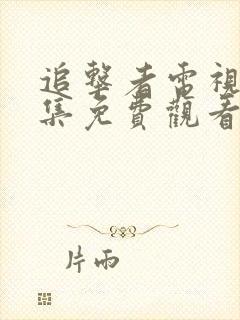 追擊者電視
集免費觀看
片雨